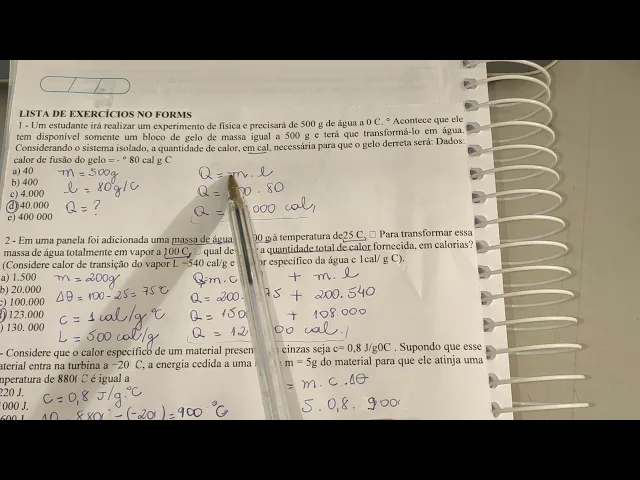 LISTA DE EXERCÍCIOS NO FORMS
1 - Um estudante irá realizar um experimento de física e precisará de 500 g de água a 0 C. ° Acontece que ele
tem disponível somente um bloco de gelo de massa igual a 500 g e terá que transformá-lo em água.
Considerando o sistema isolado, a quantidade de calor, em cal, necessária para que o gelo derreta será: Dados:
calor de fusão do gelo = · ° 80 cal g C
a) 40 m = 500g Q = m . l
b) 400 l = 80 g/C Q = . 80
c) 4.000 Q = ?
d) 40.000 Q = 000 cal,
e) 400 000
2 - Em uma panela foi adicionada uma massa de água 00 g à temperatura de 25 C, □ Para transformar essa
massa de água totalmente em vapor a 100 C, qual de a quantidade total de calor fornecida, em calorias?
(Considere calor de transição do vapor L =540 cal/g e específico da água c 1cal/ g C).
a) 1.500 m = 200g Q = m.c + m.l
b) 20.000 Δθ = 100-25 = 75°C Q = 200. 75 + 200.540
c) 100.000 Q = 150 + 108.000
d) 123.000 c = 1 cal/g °C
) 130. 000 L = 500 cal/g Q = 12 00 cal.
- Considere que o calor específico de um material presen cinzas seja c= 0,8 J/g0C . Supondo que esse
aterial entra na turbina a −20 C, a energia cedida a uma m = 5g do material para que ele atinja uma
mperatura de 880( C é igual a
220 J. c = 0,8 J/g.°C = m.c.Δθ
000 J. 5.0,8.900
600 J. Δθ = 880 - (-20) = 900 °C